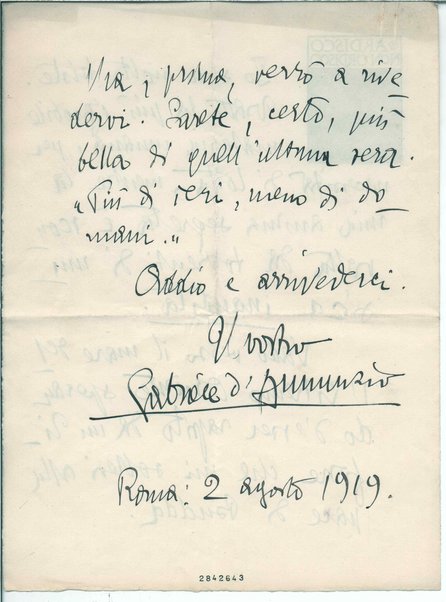 Ma, prima, verrò a rive
dervi. Sarete, certo, più
bella di quell'ultima sera.
"Più di ieri, meno di do
mani."
Addio e arrivederci.
Il vostro
Gabriele d'Annunzio
Roma: 2 agosto 1919.
2842643